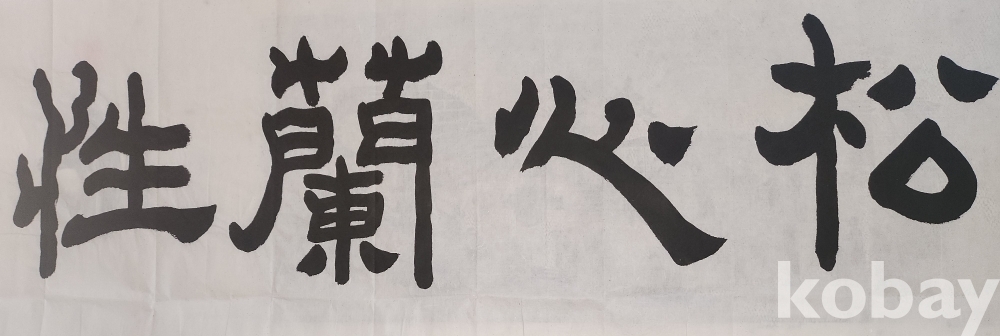 松心蘭性
kobay